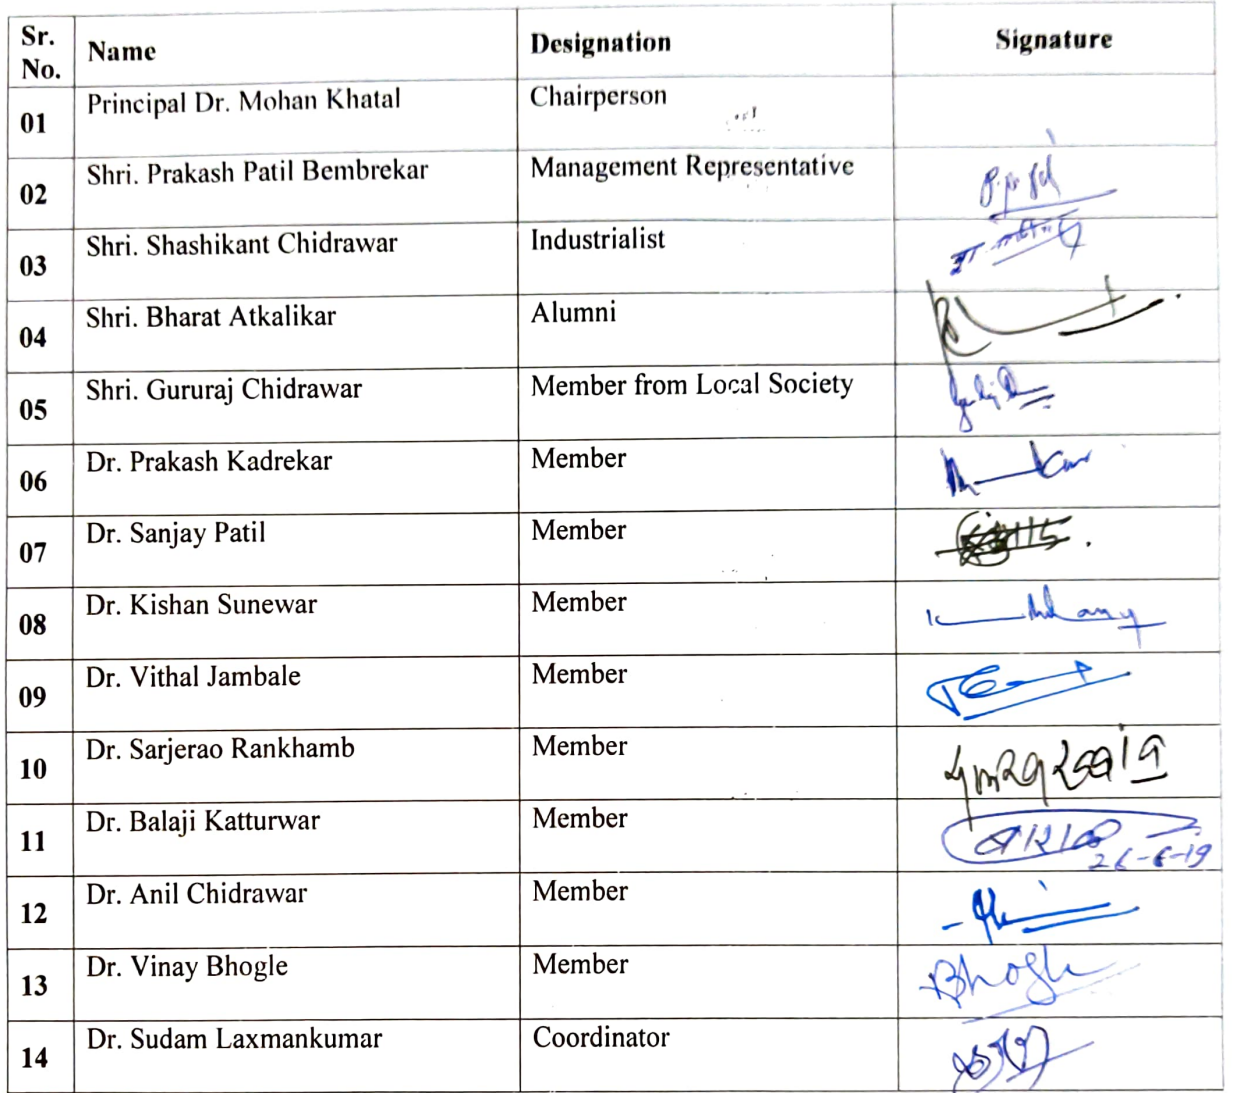 Sr. No. Name Designation Signature
01 Principal Dr. Mohan Khatal Chairperson
02 Shri. Prakash Patil Bembrekar Management Representative
03 Shri. Shashikant Chidrawar Industrialist
04 Shri. Bharat Atkalikar Alumni
05 Shri. Gururaj Chidrawar Member from Local Society
06 Dr. Prakash Kadrekar Member
07 Dr. Sanjay Patil Member
08 Dr. Kishan Sunewar Member
09 Dr. Vithal Jambale Member
10 Dr. Sarjerao Rankhamb Member
11 Dr. Balaji Katturwar Member 26-6-19
12 Dr. Anil Chidrawar Member
13 Dr. Vinay Bhogle Member Bhogle
14 Dr. Sudam Laxmankumar Coordinator